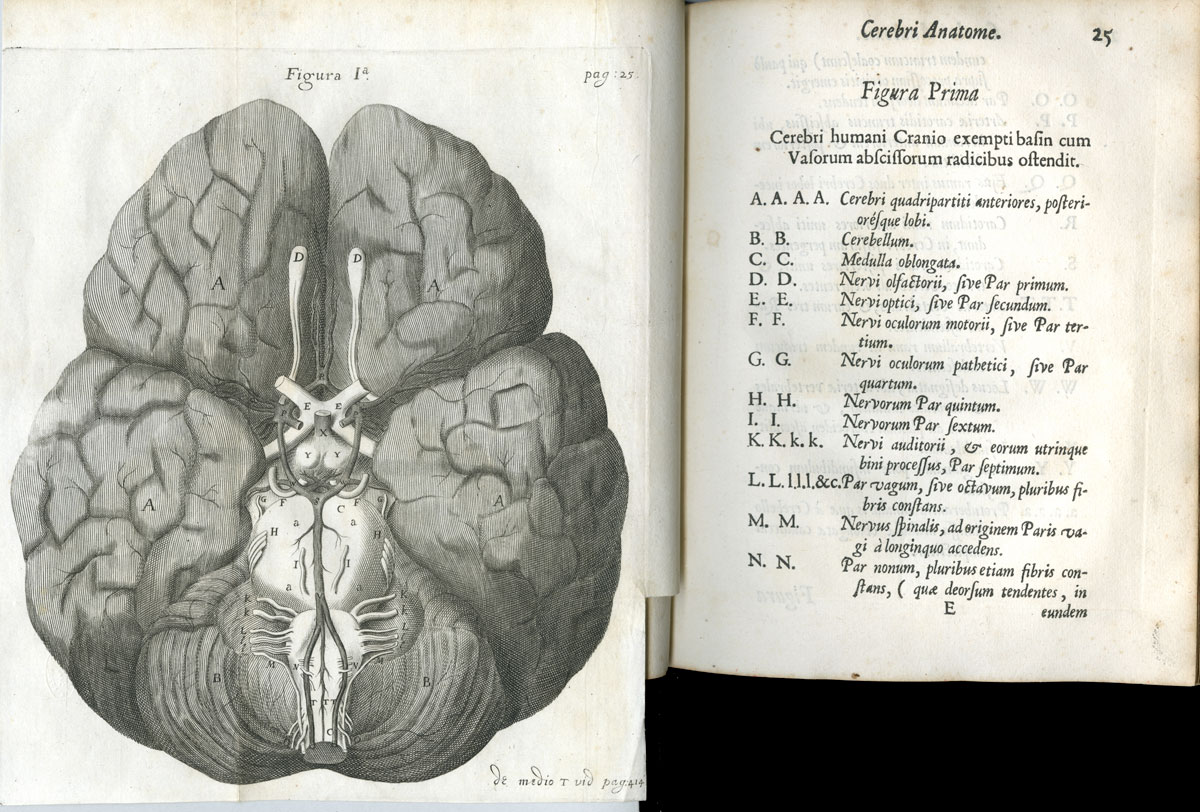 Figura Iª.
pag: 25.
D D
A A
E E
X
Y Y
A A
G F C F G
a a
H H
I I
a a
K K
k k
L L
l l
l l
M N N M
B B
T T T
C
de medio T vid pag: 414
Cerebri Anatome. 25
Figura Prima
Cerebri humani Cranio exempti baſin cum
Vaſorum abſciſſorum radicibus oſtendit.
A. A. A. A. Cerebri quadripartiti anteriores, poſteri-
oréſque lobi.
B. B. Cerebellum.
C. C. Medulla oblongata.
D. D. Nervi olfactorii, ſive Par primum.
E. E. Nervi optici, ſive Par ſecundum.
F. F. Nervi oculorum motorii, ſive Par ter-
tium.
G. G. Nervi oculorum pathetici, ſive Par
quartum.
H. H. Nervorum Par quintum.
I. I. Nervorum Par ſextum.
K. K. k. k. Nervi auditorii, & eorum utrinque
bini proceſſus, Par ſeptimum.
L. L. l. l. l. &c. Par vagum, ſive octavum, pluribus fi-
bris conſtans.
M. M. Nervus ſpinalis, ad originem Paris va-
gi à longinquo accedens.
N. N. Par nonum, pluribus etiam fibris con-
ſtans, ( quæ deorſum tendentes, in
E eundem